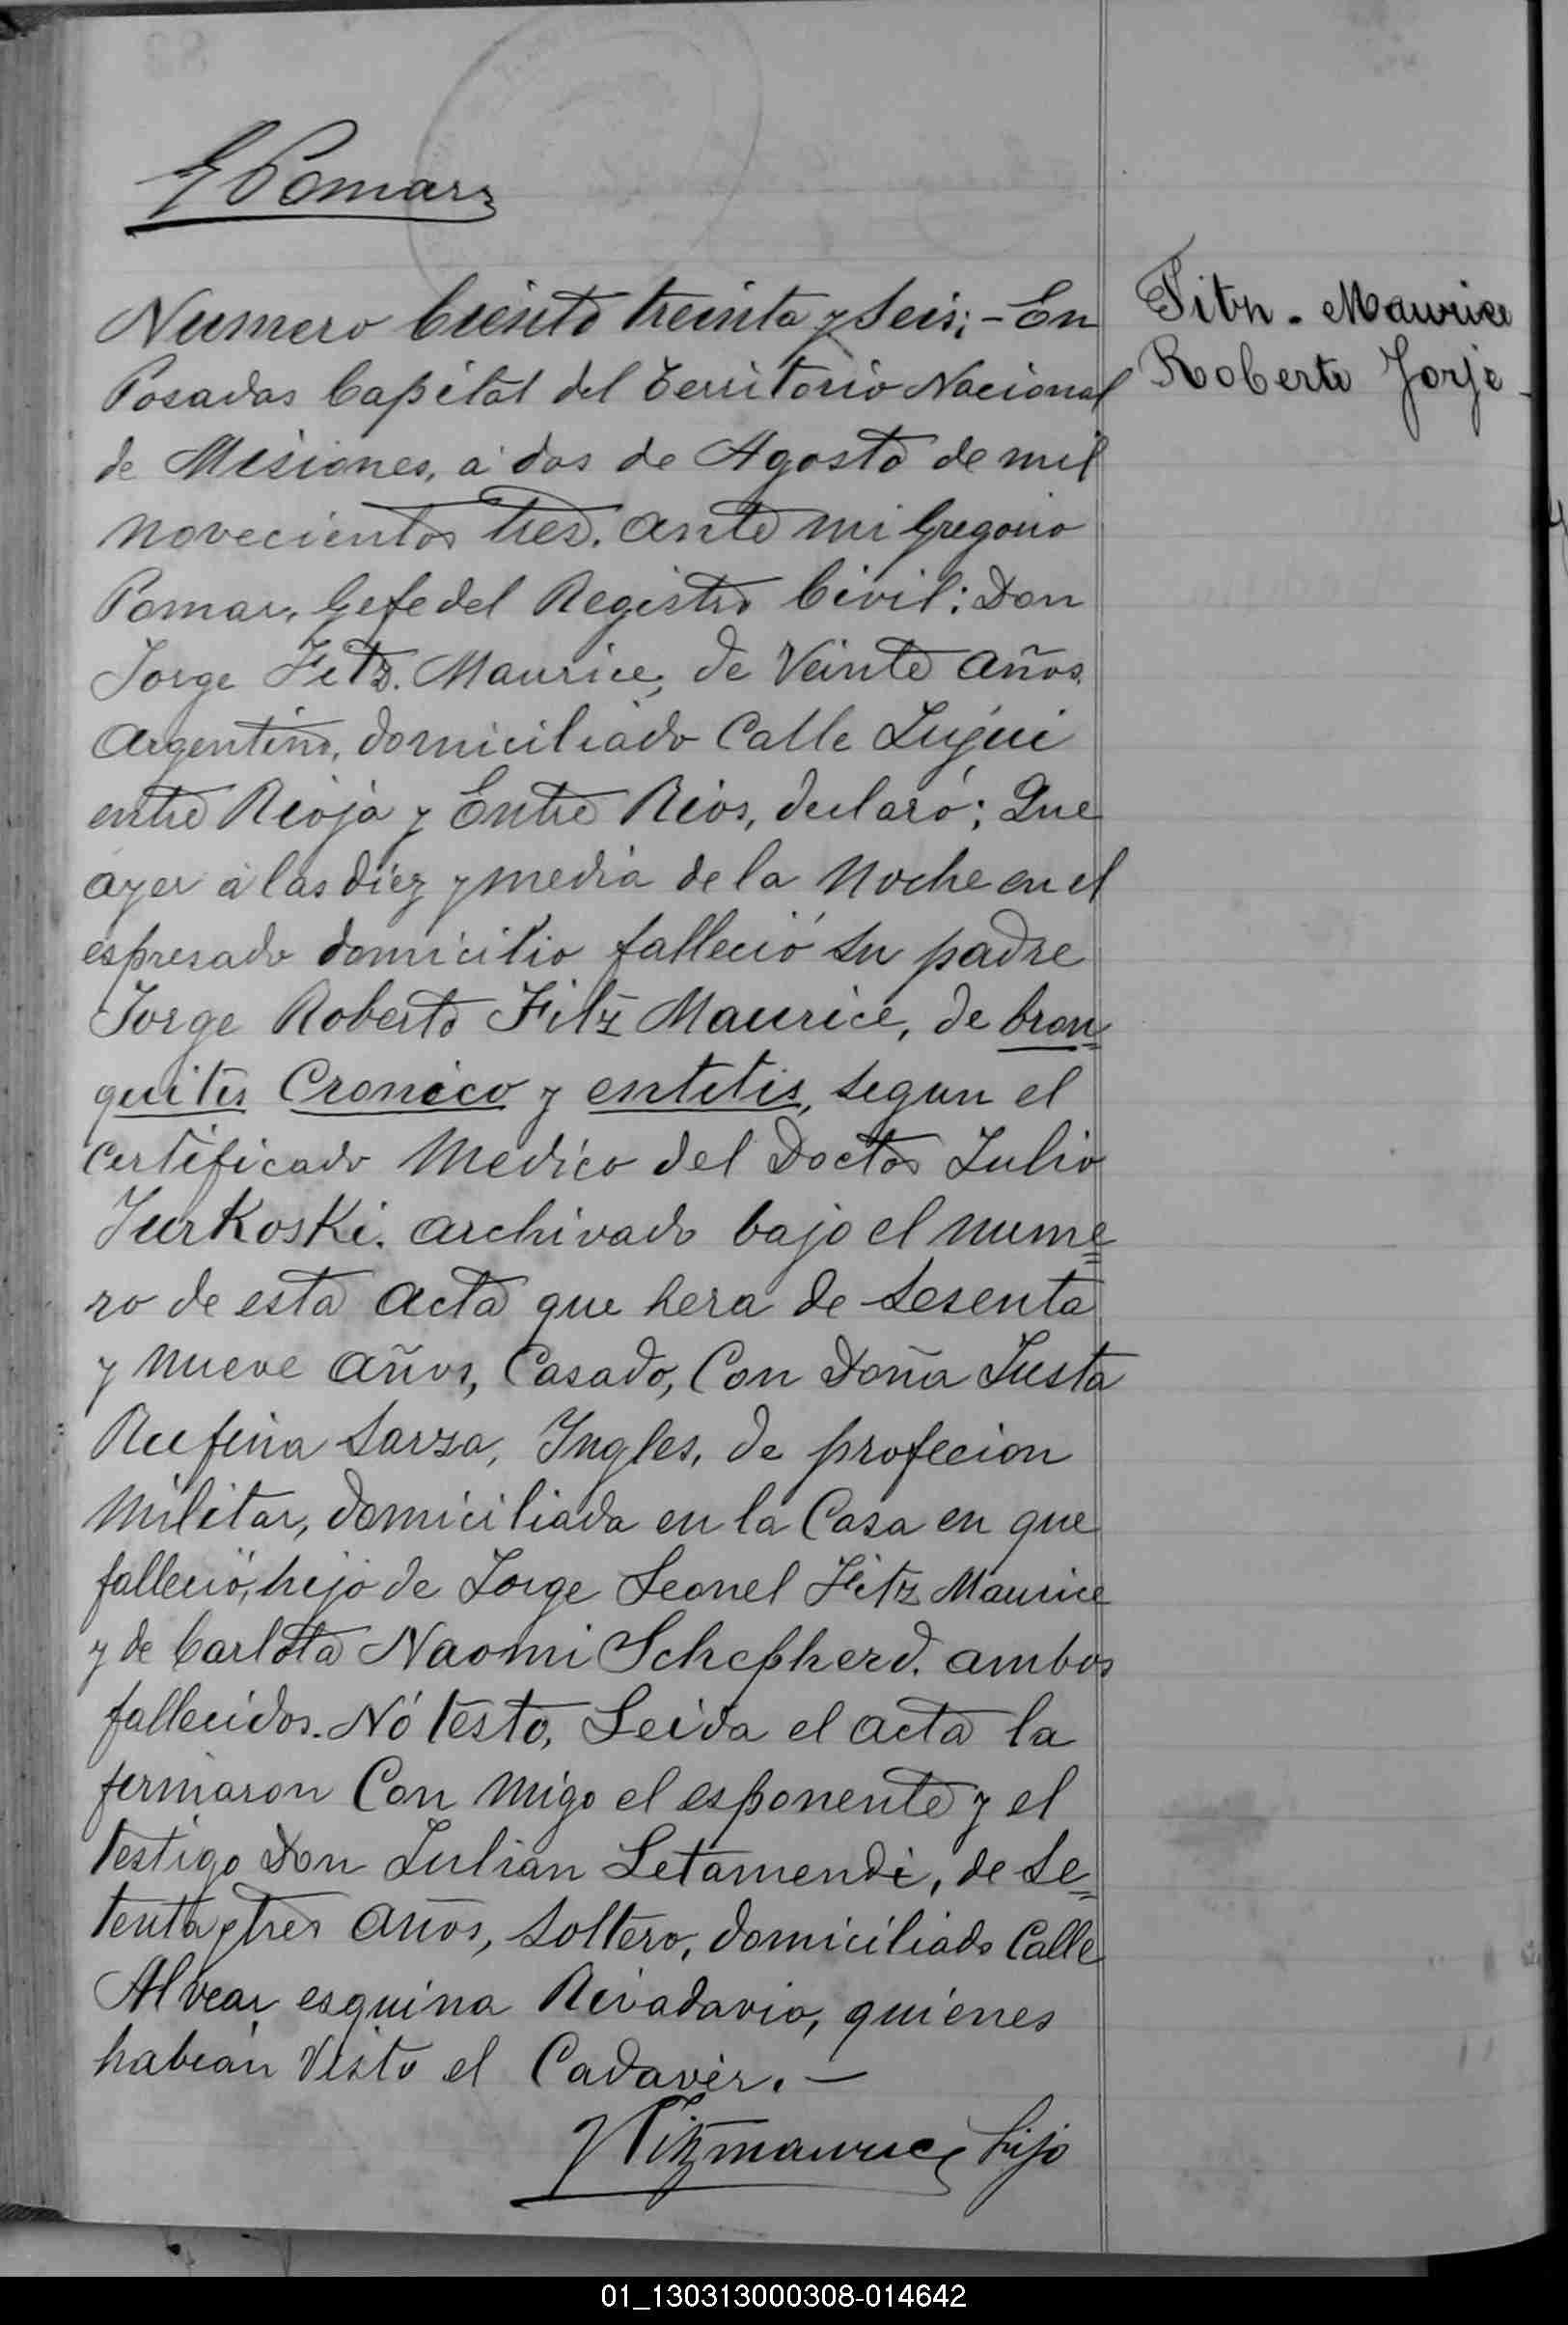 G Pomar
Numero Ciento treinta y Seis; - En
Posadas Capital del Territorio Nacional
de Misiones, á dos de Agosto de mil
novecientos tres. ante mi Gregorio
Pomar, Gefe del Registro Civil: Don
Jorge Fitz. Maurice, de Veinte años,
Argentino, domiciliado Calle Jujui
entre Rioja y Entre Rios, declaró; Que
ayer á las diez y media de la noche en el
espresado domicilio falleció su padre
Jorge Roberto Fitz Maurice, de bron=
quitis Cronico y entetis, segun el
certificado Medico del Doctor Julio
Jurkoski. archivado bajo el nume=
ro de esta acta que hera de Sesenta
y nueve años, Casado, Con Doña Justa
Rufina Sarza, Ingles, de profecion
Militar, domiciliada en la Casa en que
falleció, hijo de Jorge Leonel Fitz Maurice
y de Carlota Naomi Schepherd. ambos
fallecidos. Nó testo, Leida el acta la
firmaron Con migo el esponente y el
testigo Don Julian Letamendi, de Se=
tenta y tres años, Soltero, domiciliado Calle
Alvear esquina Rivadavia, quienes
habian Visto el Cadaver. -
J Fitzmaurice hijo
Fitz - Maurice
Roberto Jorje -
01_130313000308-014642